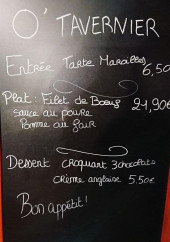 O' TAVERNIER
Entrée Tarte Maroilles 6,50
Plat : Filet de Boeuf 21,90€
sauce au poivre
Pomme au four
Dessert croquant 3 chocolats
crème anglaise 5.50€
Bon appétit !